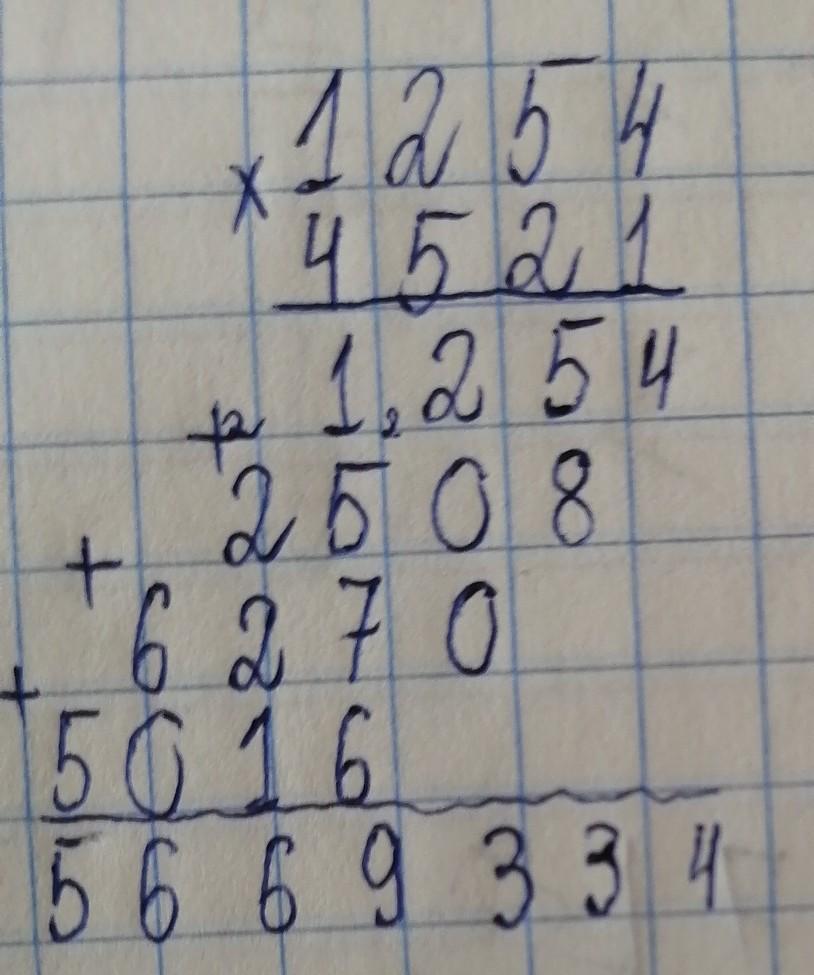 1254
× 4521
1,254
+2 2508
+ 6270
+ 5016
5669334